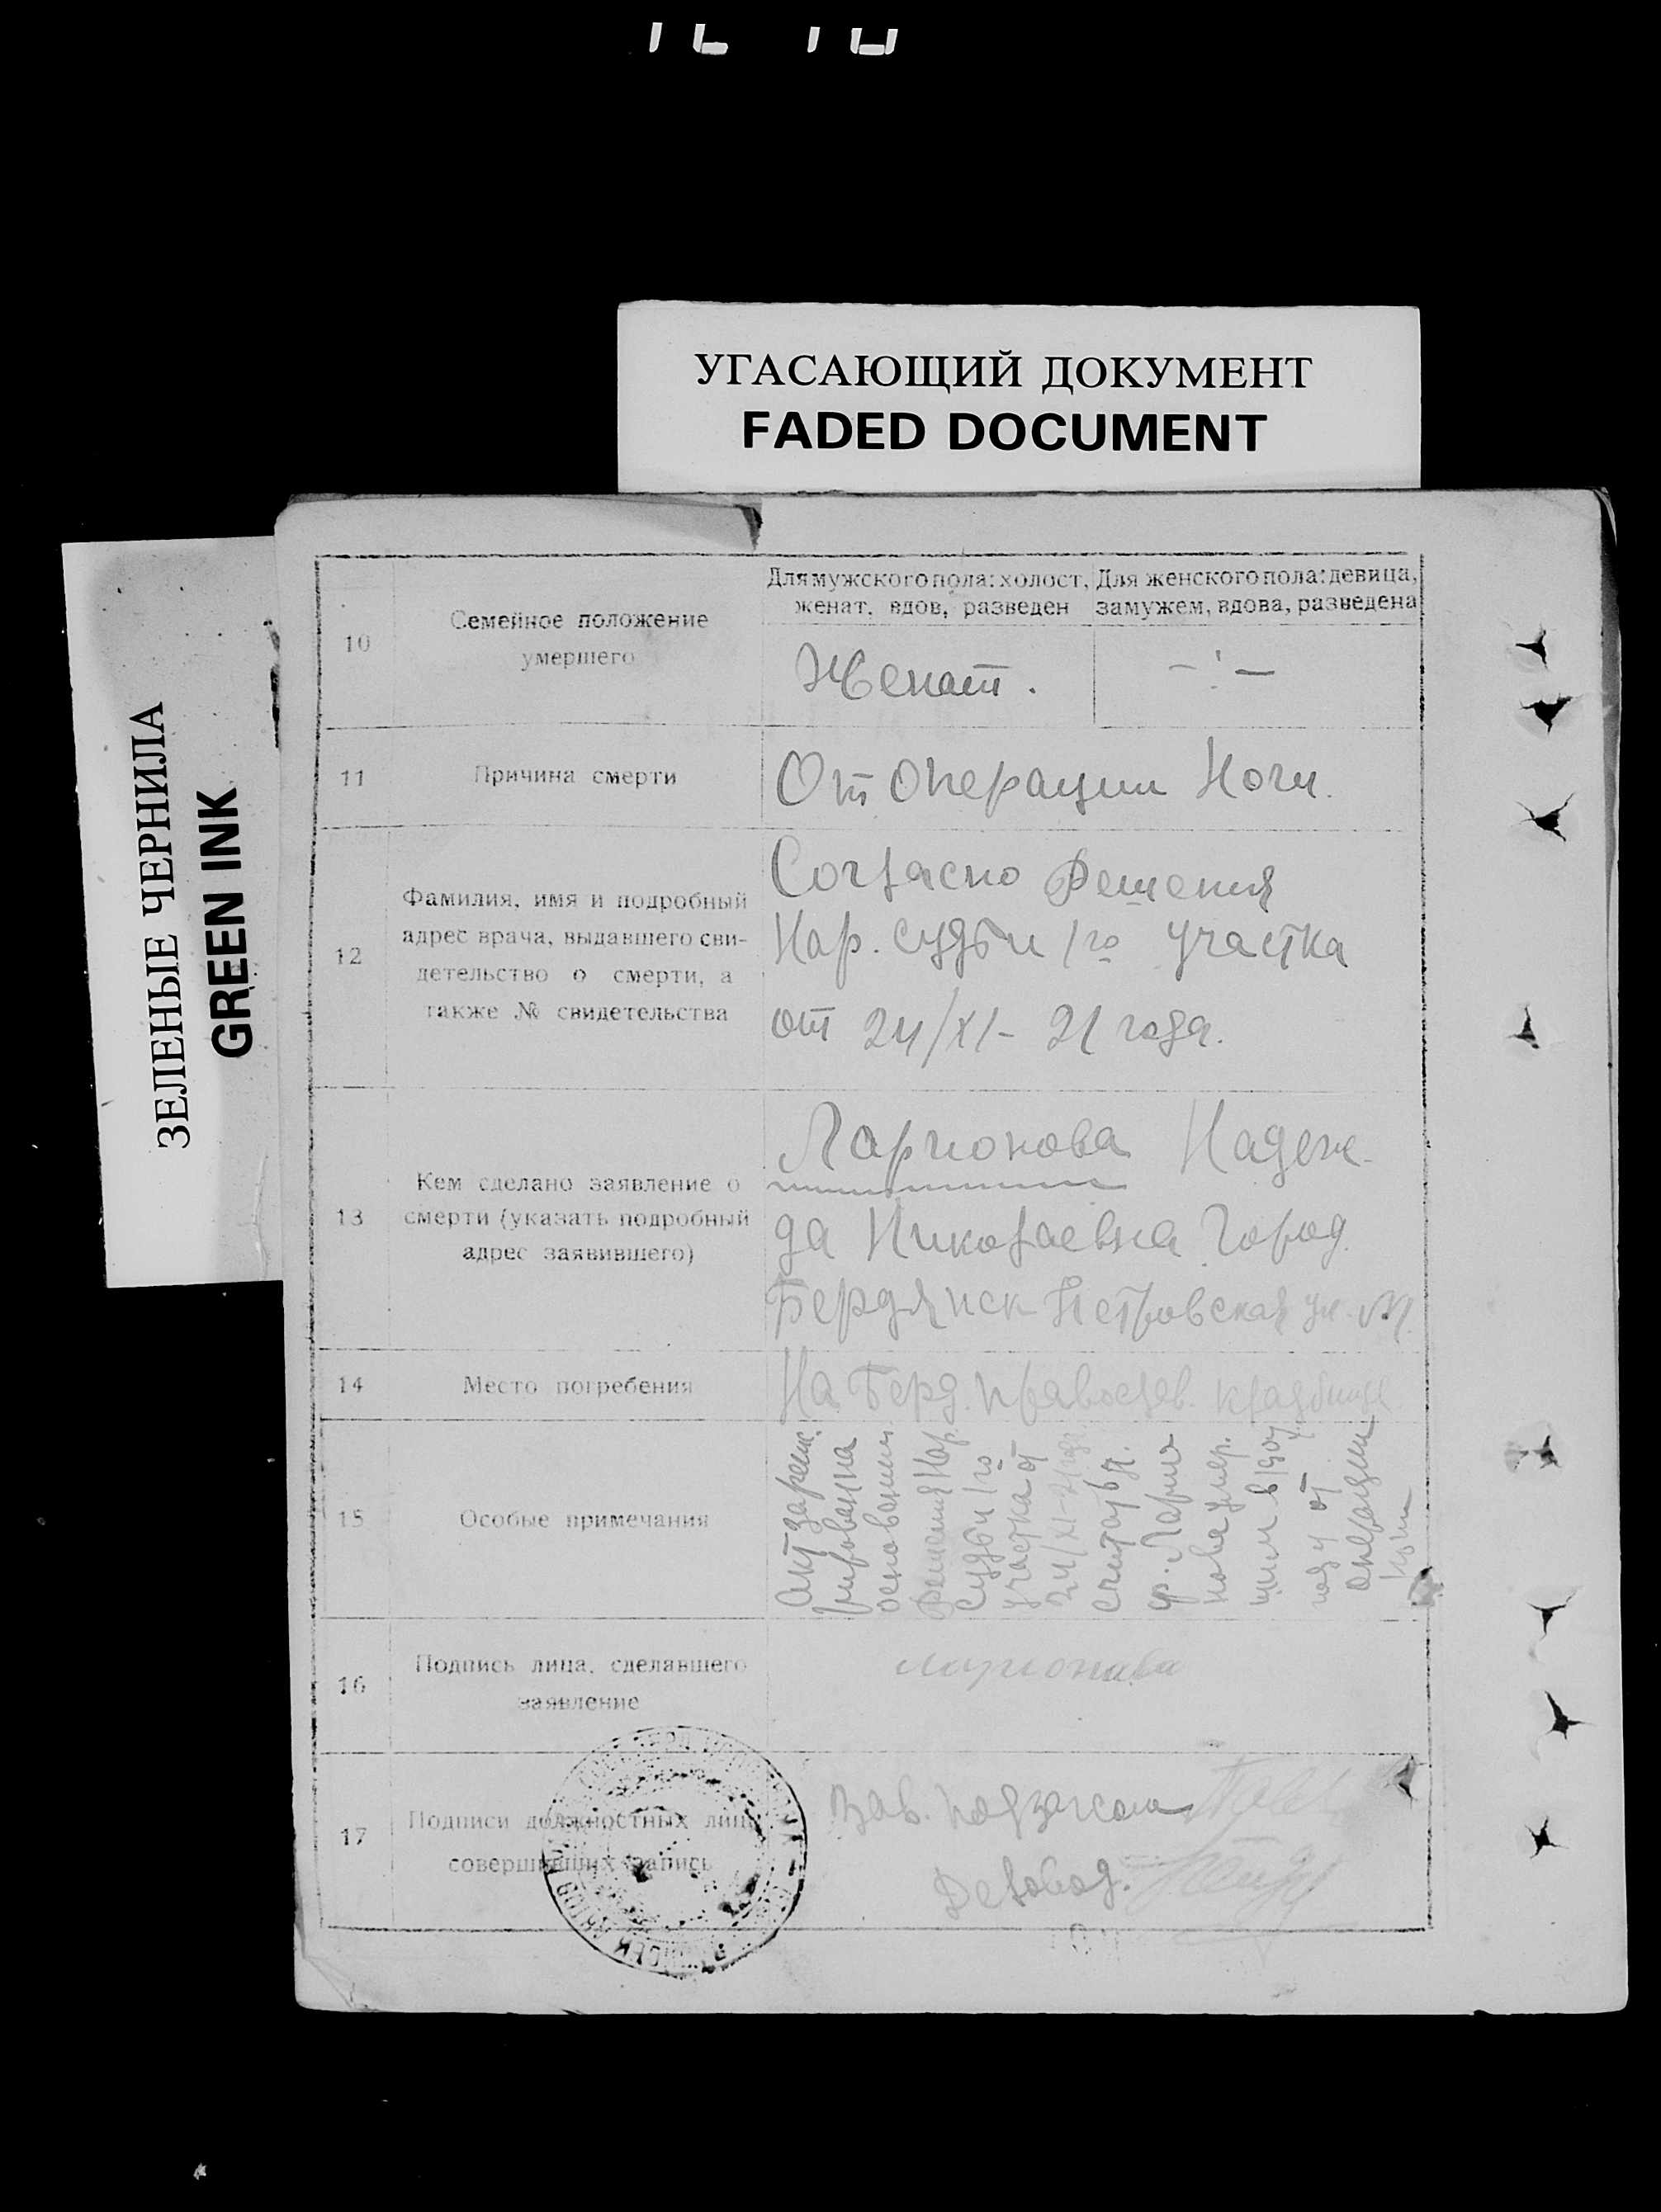 УГАСАЮЩИЙ ДОКУМЕНТ
FADED DOCUMENT
ЗЕЛЕНЫЕ ЧЕРНИЛА
GREEN INK
10
Семейное положение
умершего
Для мужского пола: холост,
женат, вдов, разведен
Для женского пола: девица,
замужем, вдова, разведена
Женат.
11
Причина смерти
От Операции Ноги.
12
Фамилия, имя и подробный
адрес врача, выдавшего сви-
детельство о смерти, а
также № свидетельства
Согласно Решения
Нар. Судьи 1го участка
от 24/XI - 21 года.
13
Кем сделано заявление о
смерти (указать подробный
адрес заявившего)
Ларионова Надеж-
да Николаевна Город
Бердянск Петровская ул.
14
Место погребения
На Берд. Православ. кладбище
15
Особые примечания
Акт зареги-
рирован на
основании
решения Нар.
Судьи 1го
участка от
24/XI - 21 года
считать
гр. Ларио
нова умер.
шим в
году от
операции
ноги
16
Подпись лица, сделавшего
заявление
Ларионова
17
Подписи должностных лиц,
совершивших запись
Зав. подзагсом
Деловод.